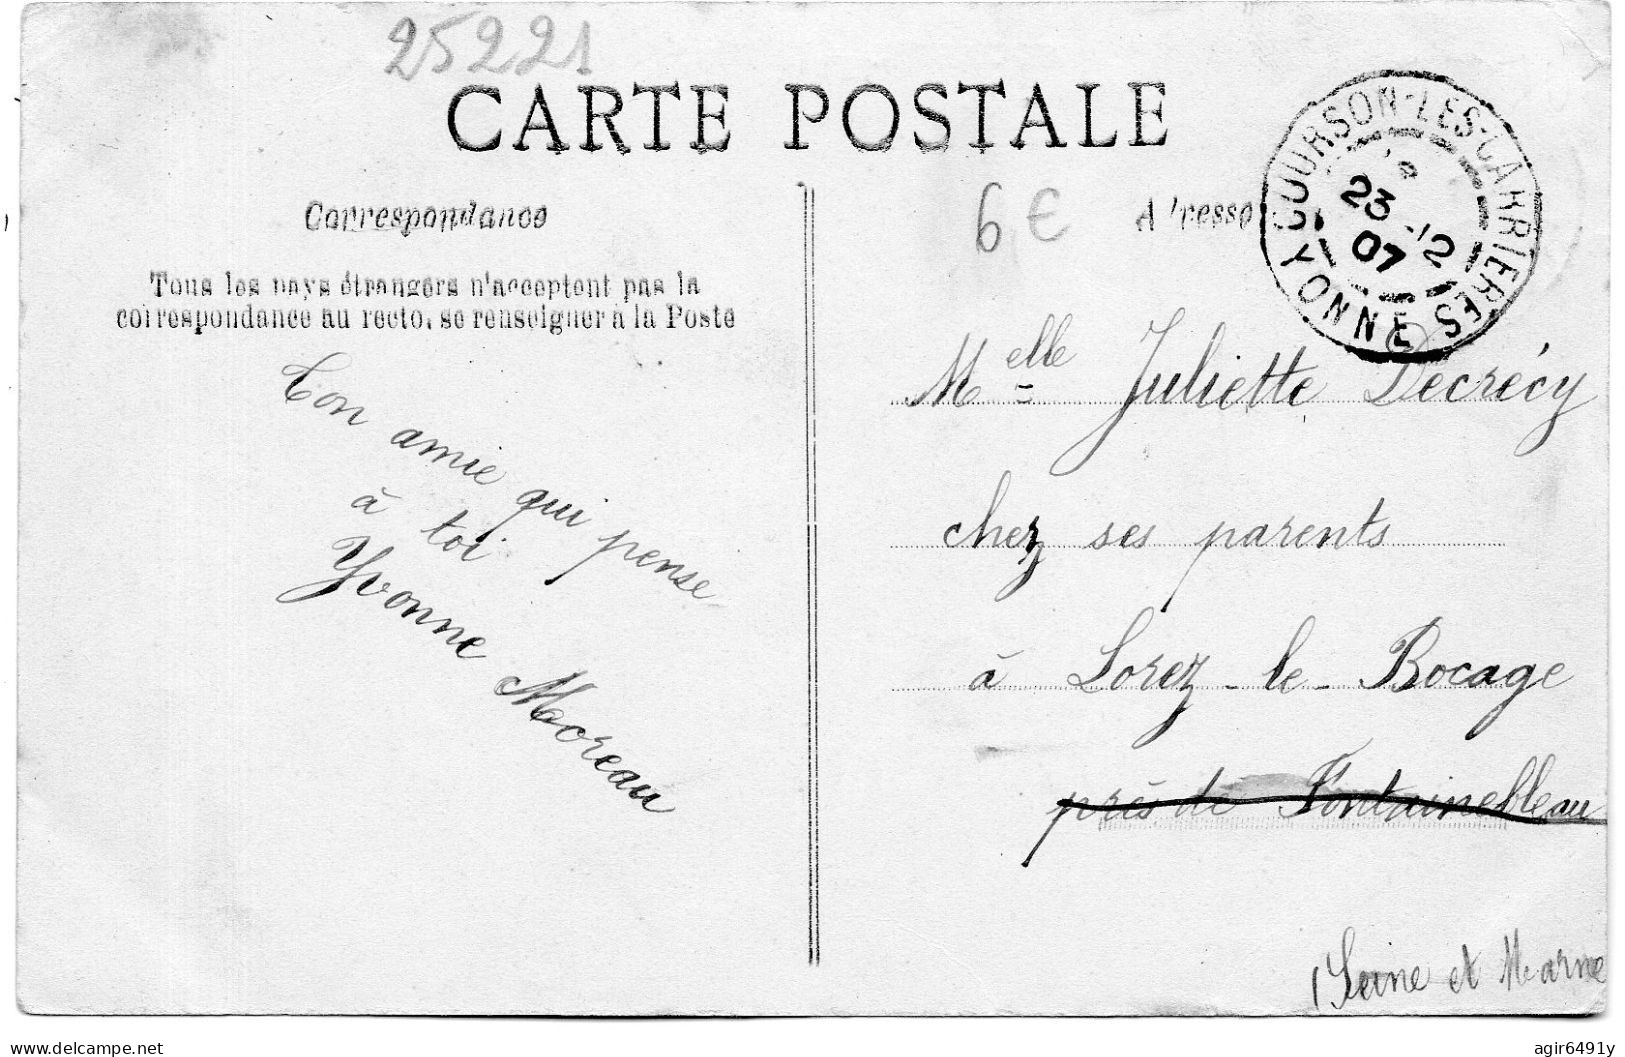 25221
CARTE POSTALE
COURSON-LES-CARRIERES
YONNE
23 -12
07
Correspondance
6 €
Adresse
Tous les pays étrangers n'acceptent pas la
correspondance au recto, se renseigner à la Poste
Ton amie qui pense
à toi
Yvonne Moreau
Melle Juliette Decrécy
chez ses parents
à Lorez-le-Bocage
près de Fontainebleau
Seine et Marne
delcampe.net
agir6491y